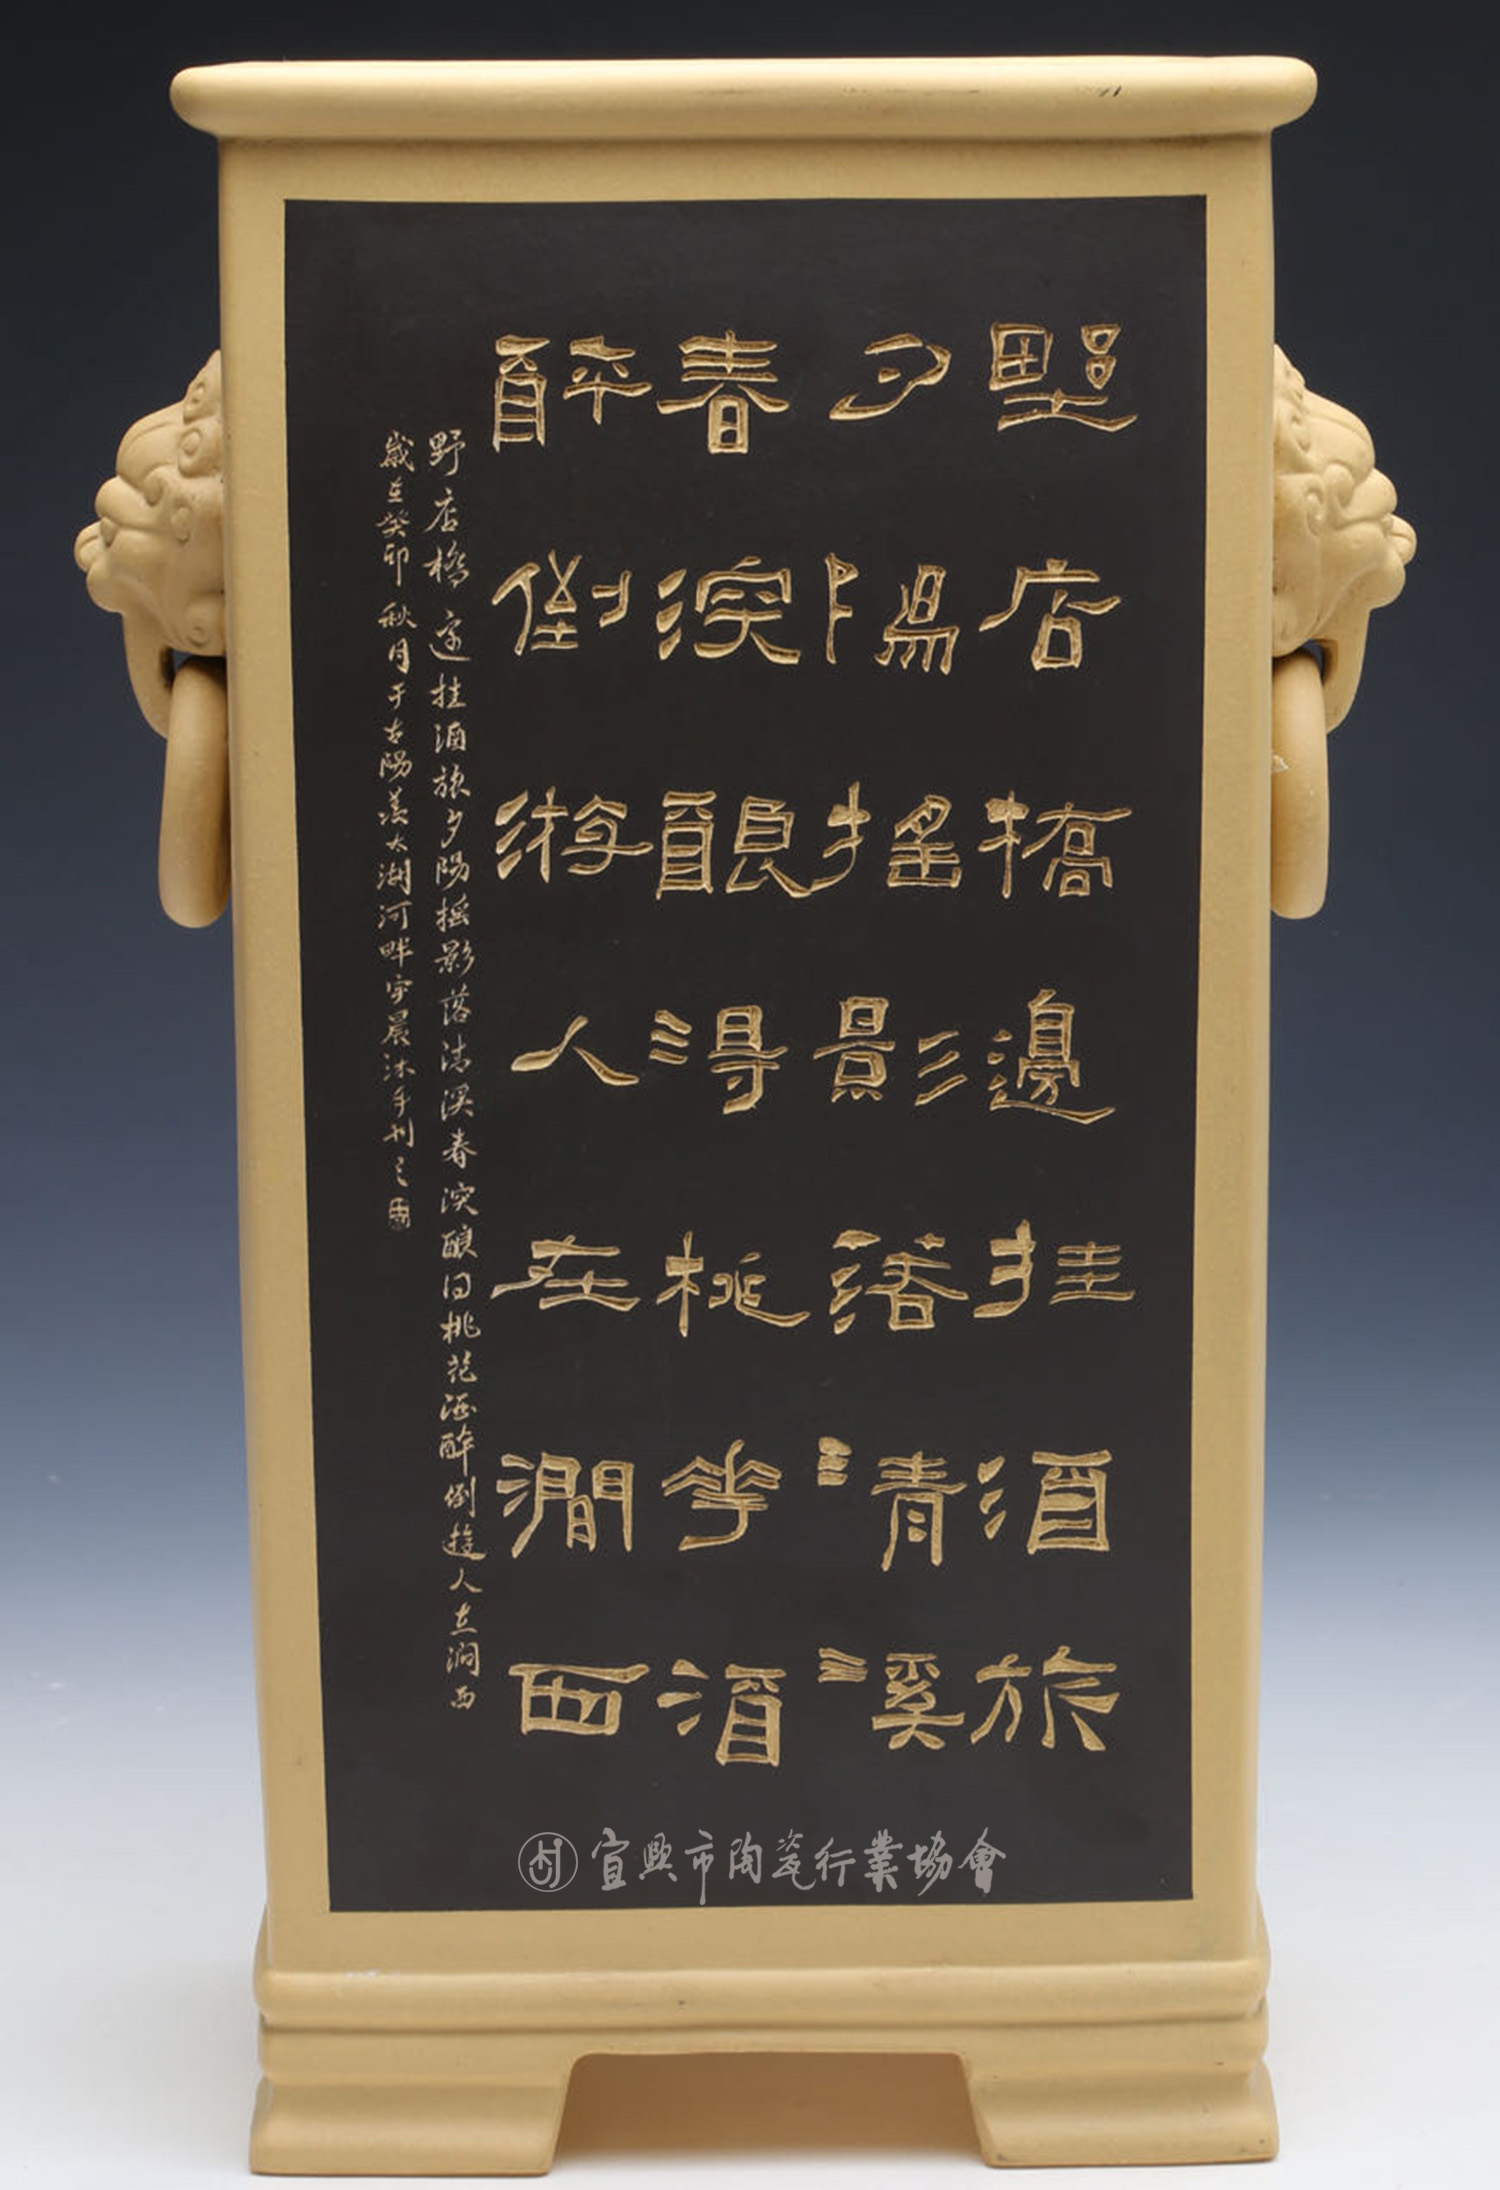 野店橋邊挂酒旅
夕陽搖影落清溪
春深釀得桃花酒
醉倒游人在澗西
野店橋邊挂酒旅夕陽搖影落清溪春深釀得桃花酒醉倒遊人在澗西
歲在癸卯秋月于古陽羨太湖河畔宇晨沐手刊之
宜興市陶瓷行業協會